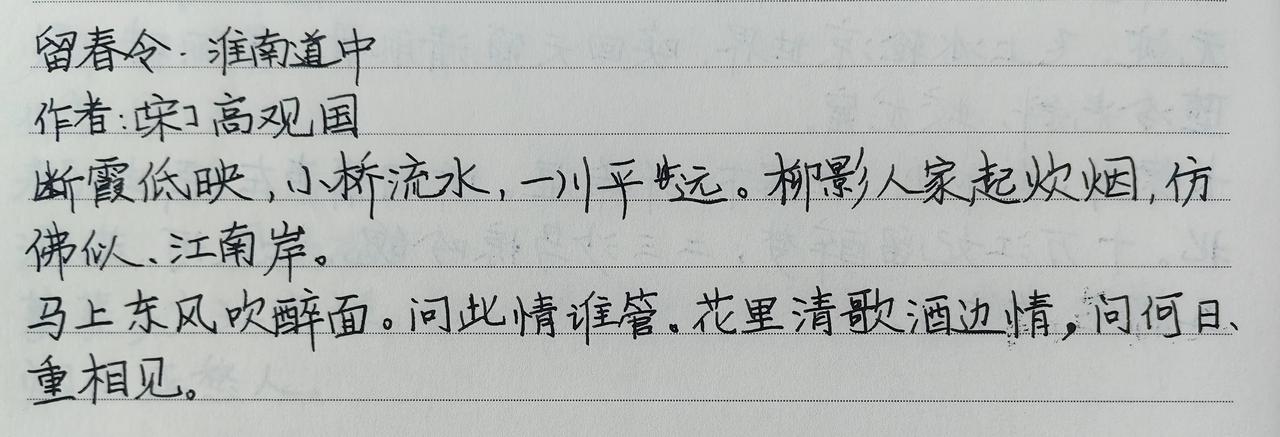 留春令·淮南道中
作者:[宋]高观国
断霞低映,小桥流水,一川平远。柳影人家起炊烟,仿
佛似、江南岸。
马上东风吹醉面。问此情谁管。花里清歌酒边情,问何日、
重相见。